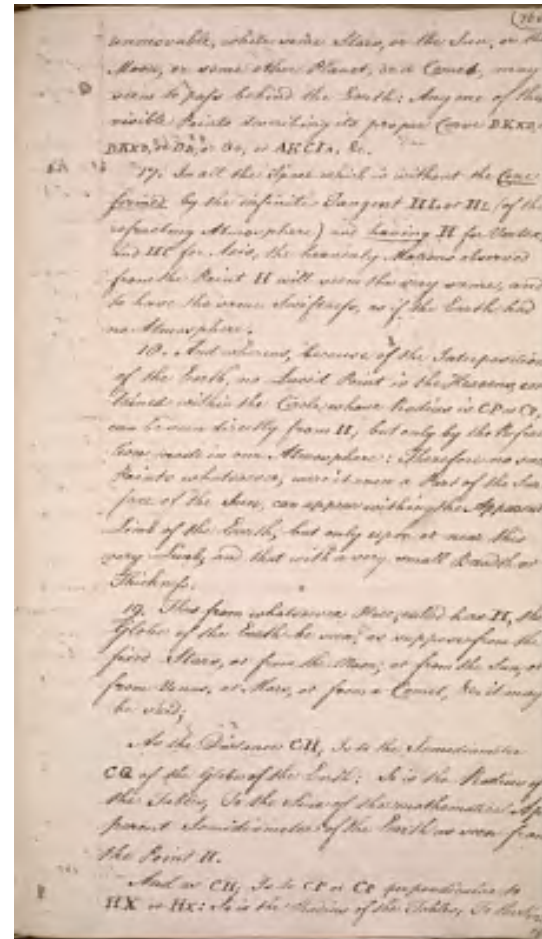 unmovable, while some Stars, or the Sun, or the
Moon, or some other Planet, or a Comet, may
seem to pass behind the Earth: Any one of this
visible Points describing its proper Curve
&c.
17. In all the Space which is without the Cone
formed by the infinite Tangent HL or HL (of the
refracting Atmosphere) and having H for Vertex,
and HC for Axis, the heavenly Motions observed
from the Point H will seem the very same, and
to have the same Swiftness, as if the Earth had
no Atmosphere.
18. And whereas, because of the Interposition
of the Earth, no Lucid Point in the Heavens, con
tained within the Circle, whose Radius is CP or CP,
can be seen directly from H, but only by the Refrac
tions made in our Atmosphere: Therefore no such
Points whatsoever, were it even a Part of the Sur
face of the Sun, can appear within the Apparent
Limb of the Earth, but only upon or near this
very Limb, and that with a very small Breadth or
Thickness.
19. Thus from whatsoever Place, called here H, the
Globe of the Earth be seen; as suppose from the
fixed Stars, or from the Moon; or from the Sun, or
from Venus, or Mars, or from a Comet, &c. it may
be said;
As the Distance CH, Is to the Semidiameter
CQ of the Globe of the Earth: So is the Radius of
the Tables, To the Sine of the mathematical Ap
parent Semidiameter of the Earth as seen from
the Point H.
And as CH, Is to CP or CP perpendicular to
HX or HX: So is the Radius of the Tables, To the Sine